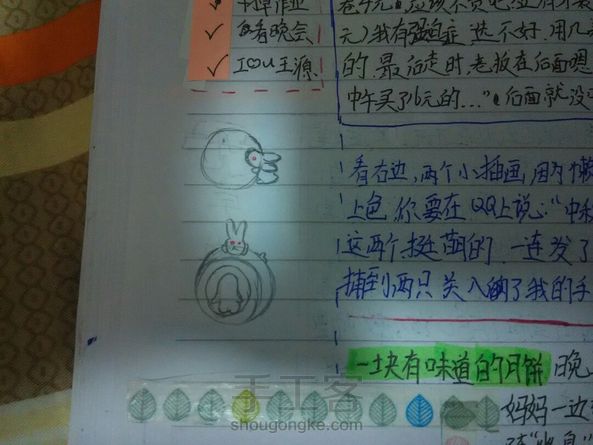 ✓ 看晚会
✓ I♡U 王源
元)我有强迫症 选不好,用几
的,最后走时,老板在后面嗯
中午买了6元的..."后面就没
看右边,两个小插画,因为懒
上色 你要在QQ上说:"中秋
这两个,挺萌的,一连发了
捕到小两只 关入纳了我的手
一块有味道的月饼 晚
妈妈一边
手工客
shougongke.com